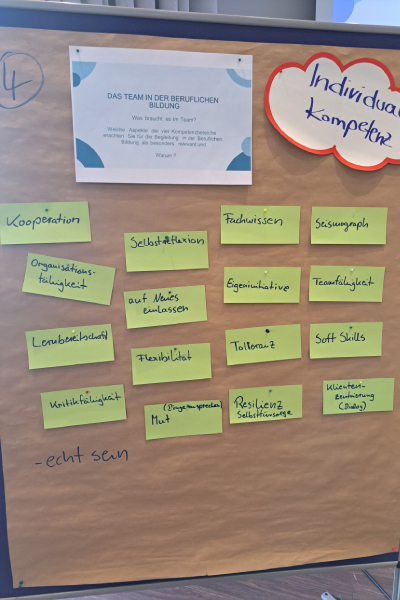 4
DAS TEAM IN DER BERUFLICHEN
BILDUNG
Was braucht es im Team?
Welche Aspekte der vier Kompetenzbereiche
erachten Sie für die Begleitung in der Beruflichen
Bildung als besonders relevant und
Warum?
Individual
Kompetenz
Kooperation
Organisations-
fähigkeit
Lernbereitschaft
Kritikfähigkeit
-echt sein
Selbstreflexion
auf Neues
einlassen
Flexibilität
Mut
Fachwissen
Eigeninitiative
Toleranz
Resilienz
Selbstfürsorge
Seismograph
Teamfähigkeit
Soft Skills
Klienten-
zentrierung
(Dialog)